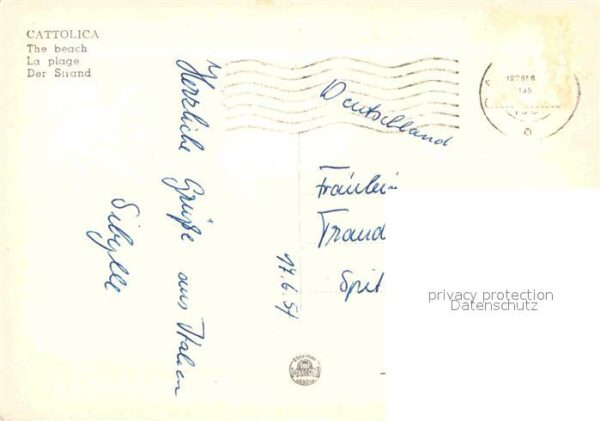 CATTOLICA
The beach
La plage
Der Strand
Herzliche Grüße aus Italien
Sibylle
17.6.57
Deutschland
Fräulein
Traud
Spit
privacy protection
Datenschutz